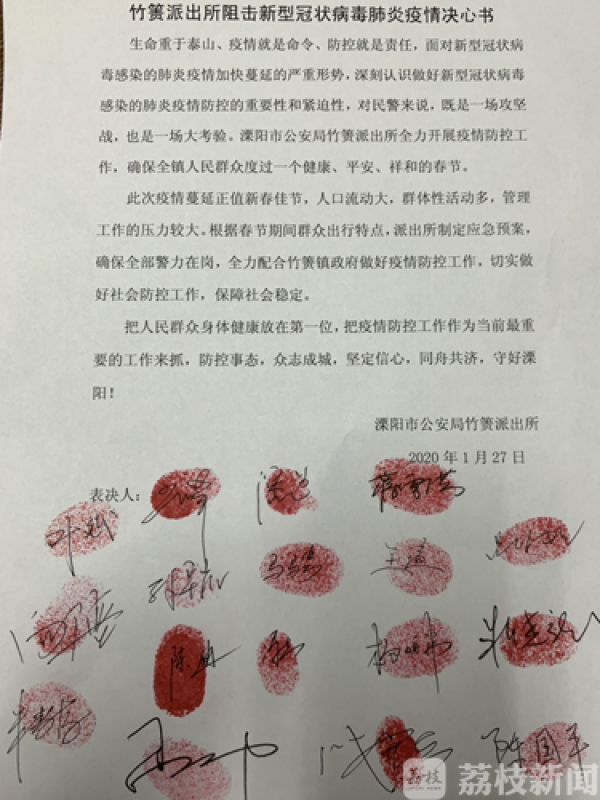 竹箦派出所阻击新型冠状病毒肺炎疫情决心书
生命重于泰山、疫情就是命令、防控就是责任，面对新型冠状病
毒感染的肺炎疫情加快蔓延的严重形势，深刻认识做好新型冠状病毒
感染的肺炎疫情防控的重要性和紧迫性，对民警来说，既是一场攻坚
战，也是一场大考验。溧阳市公安局竹箦派出所全力开展疫情防控工
作，确保全镇人民群众度过一个健康、平安、祥和的春节。
此次疫情蔓延正值新春佳节，人口流动大，群体性活动多，管理
工作的压力较大。根据春节期间群众出行特点，派出所制定应急预案，
确保全部警力在岗，全力配合竹箦镇政府做好疫情防控工作，切实做
好社会防控工作，保障社会稳定。
把人民群众身体健康放在第一位，把疫情防控工作作为当前最重
要的工作来抓，防控事态，众志成城，坚定信心，同舟共济，守好溧
阳！
溧阳市公安局竹箦派出所
2020 年 1 月 27 日
表决人：
陈国平
荔枝
荔枝新闻